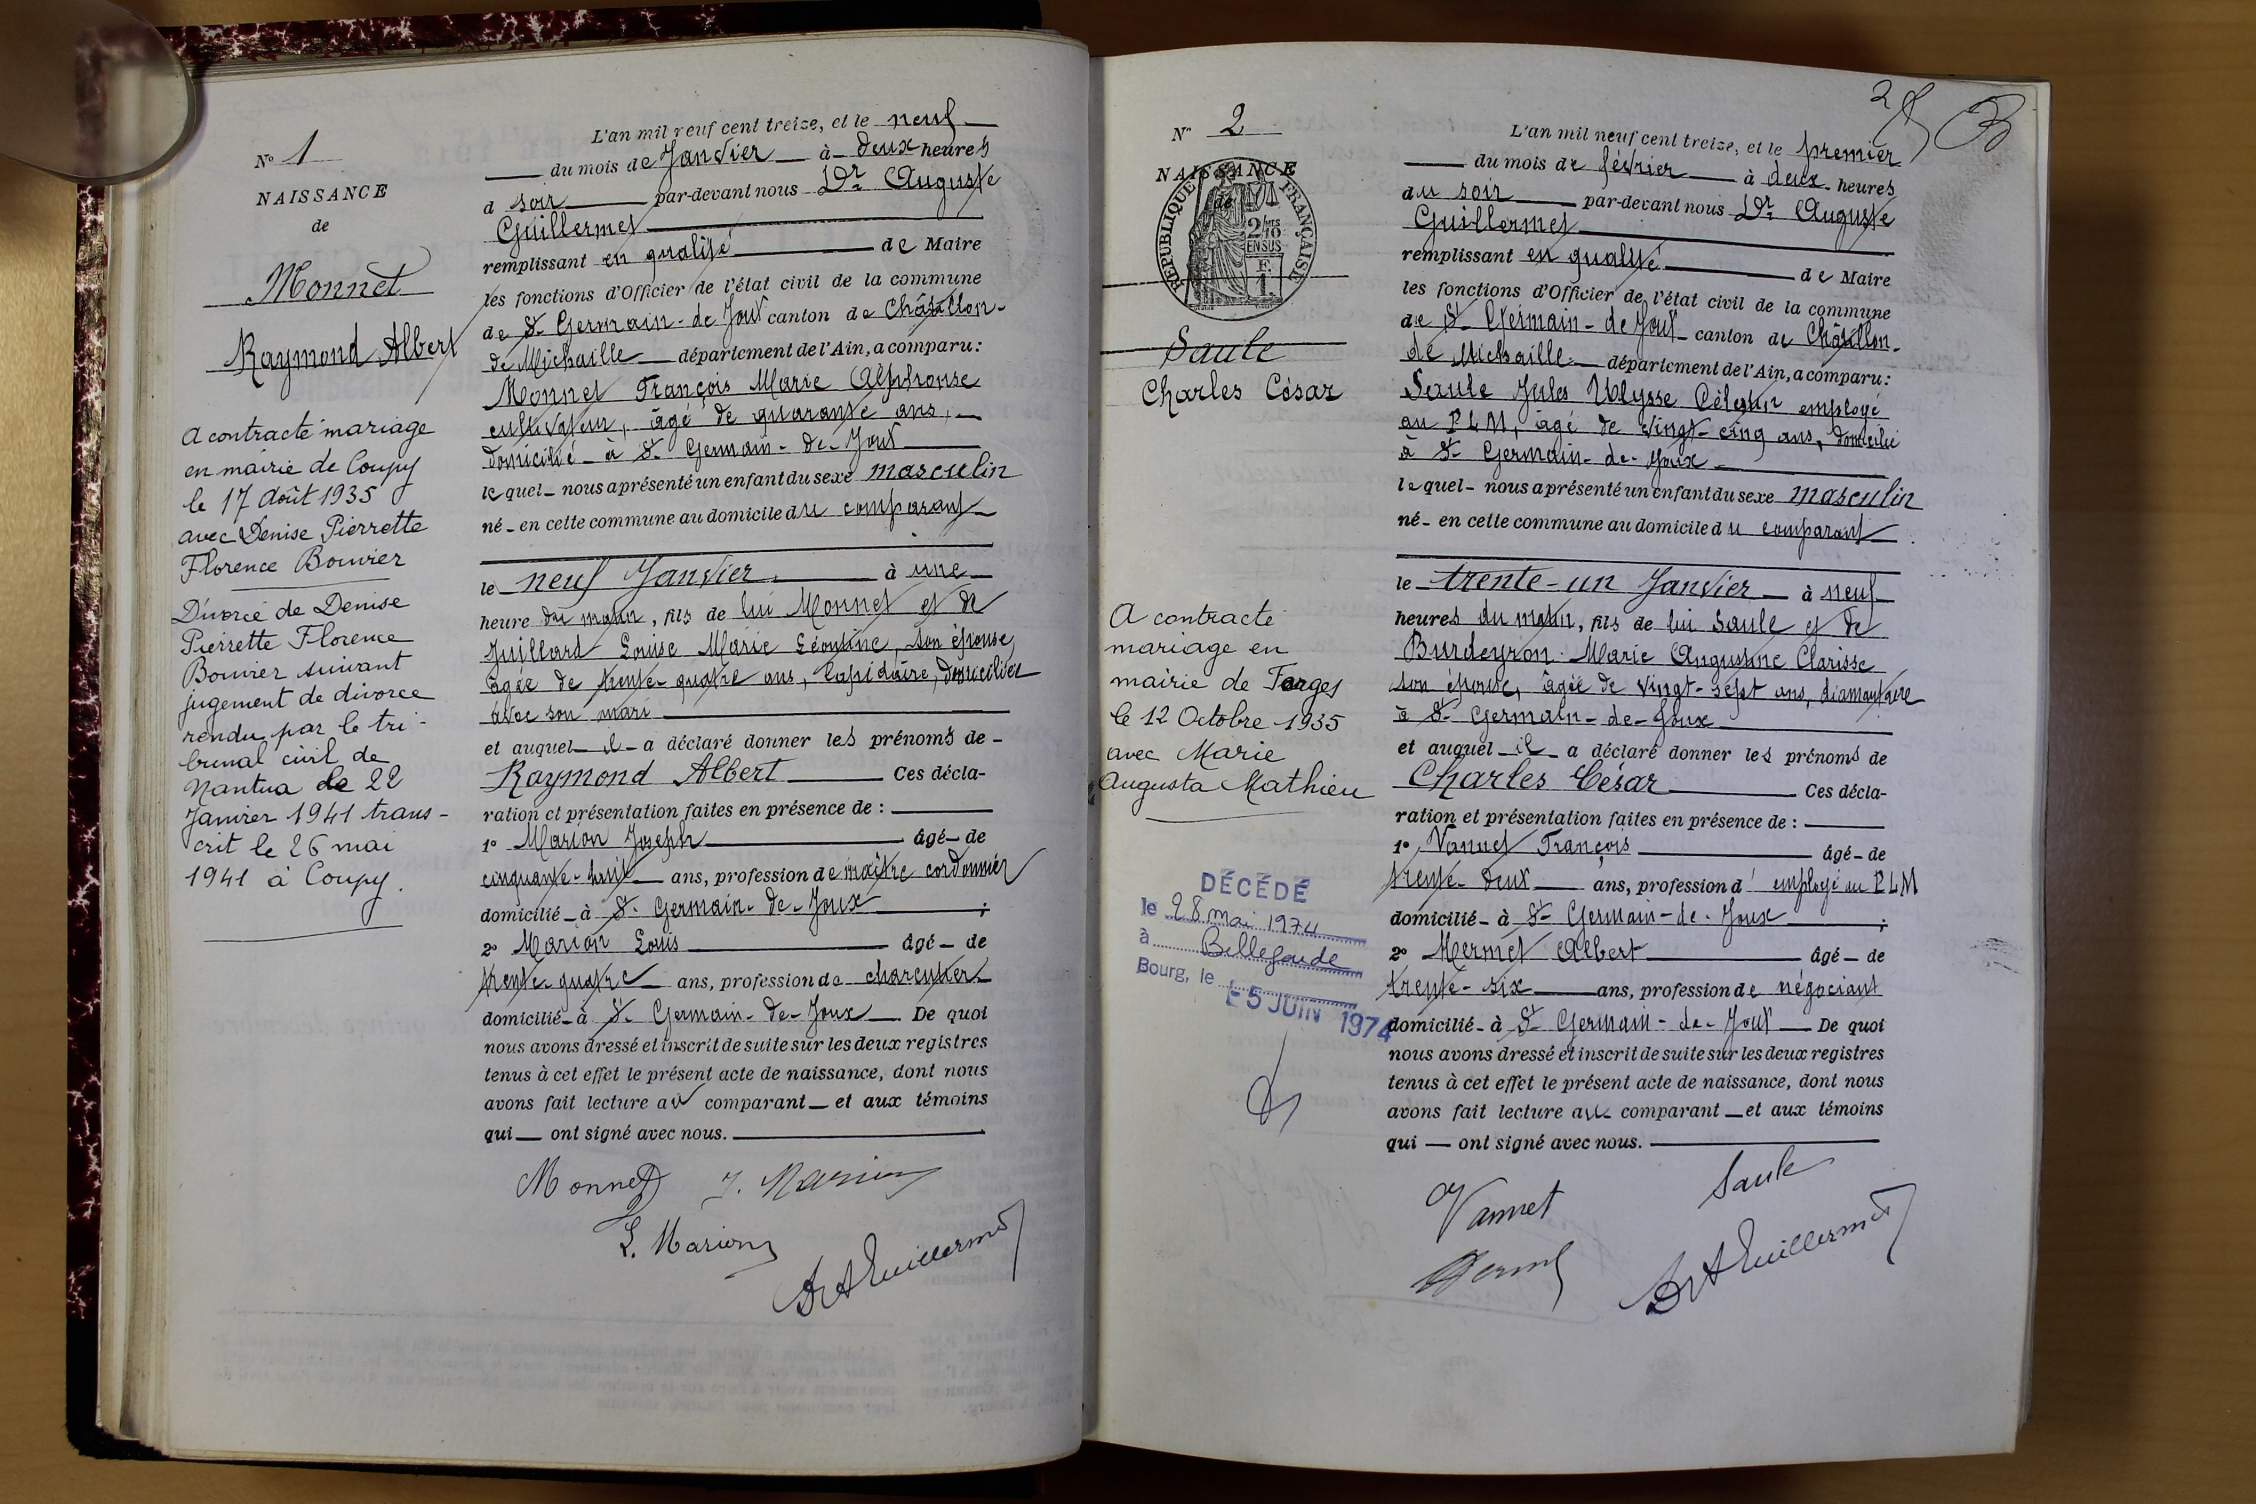 N° 1
NAISSANCE
de
Monnet
Raymond Albert
A contracté mariage
en mairie de Coupy
le 17 Août 1935
avec Denise Pierrette
Florence Bouvier
Divorcé de Denise
Pierrette Florence
Bouvier suivant
jugement de divorce
rendu par le tri-
bunal civil de
Nantua le 22
Janvier 1941 trans-
crit le 26 mai
1941 à Coupy.
L'an mil neuf cent treize, et le neuf
du mois de Janvier à deux heures
d soir par-devant nous Dr Auguste
Guillermet
remplissant en qualité de Maire
les fonctions d'Officier de l'état civil de la commune
de St Germain-de Joux canton de Châtillon-
de Michaille département de l'Ain, a comparu:
Monnet François Marie Alphonse
cultivateur, âgé de quarante ans,
domicilié à St Germain-de-Joux
lequel nous a présenté un enfant du sexe masculin
né en cette commune au domicile du comparant
le neuf Janvier à une
heure du matin, fils de lui Monnet et de
Juillard Louise Marie Léontine, son épouse,
âgée de trente-quatre ans, lapidaire, domiciliée
avec son mari
et auquel il a déclaré donner les prénoms de
Raymond Albert Ces décla-
ration et présentation faites en présence de :
1° Marion Joseph âgé de
cinquante-huit ans, profession de maître cordonnier
domicilié à St Germain-de-Joux ;
2° Marion Louis âgé de
trente-quatre ans, profession de charcutier
domicilié à St Germain-de-Joux De quoi
nous avons dressé et inscrit de suite sur les deux registres
tenus à cet effet le présent acte de naissance, dont nous
avons fait lecture au comparant et aux témoins
qui ont signé avec nous.
Monnet J. Marion
L. Marion
Dr A Guillermet
N° 2
NAISSANCE
de
RÉPUBLIQUE FRANÇAISE
2/10
EN SUS
F.
1.
Saule
Charles César
A contracté
mariage en
mairie de Farges
le 12 Octobre 1935
avec Marie
Augusta Mathieu
DÉCÉDÉ
le 28 mai 1974
à Bellegarde
Bourg, le
- 5 JUIN 1974
L'an mil neuf cent treize, et le premier
du mois de février à deux heures
du soir par-devant nous Dr Auguste
Guillermet
remplissant en qualité de Maire
les fonctions d'Officier de l'état civil de la commune
de St Germain-de Joux canton de Châtillon-
de Michaille département de l'Ain, a comparu:
Saule Jules Ulysse Célestin employé
au PLM, âgé de vingt-cinq ans, domicilié
à St Germain-de-Joux
lequel nous a présenté un enfant du sexe masculin
né en cette commune au domicile du comparant
le trente-un Janvier à neuf
heures du matin, fils de lui Saule et de
Burdeyron Marie Augustine Clarisse
son épouse, âgée de vingt-sept ans, diamantaire
à St Germain-de-Joux
et auquel il a déclaré donner les prénoms de
Charles César Ces décla-
ration et présentation faites en présence de :
1° Vannet François âgé de
trente-deux ans, profession d'employé au PLM
domicilié à St Germain-de-Joux ;
2° Mermet Albert âgé de
trente-six ans, profession de négociant
domicilié à St Germain-de-Joux De quoi
nous avons dressé et inscrit de suite sur les deux registres
tenus à cet effet le présent acte de naissance, dont nous
avons fait lecture au comparant et aux témoins
qui ont signé avec nous.
Vannet Saule
Mermet Dr A Guillermet